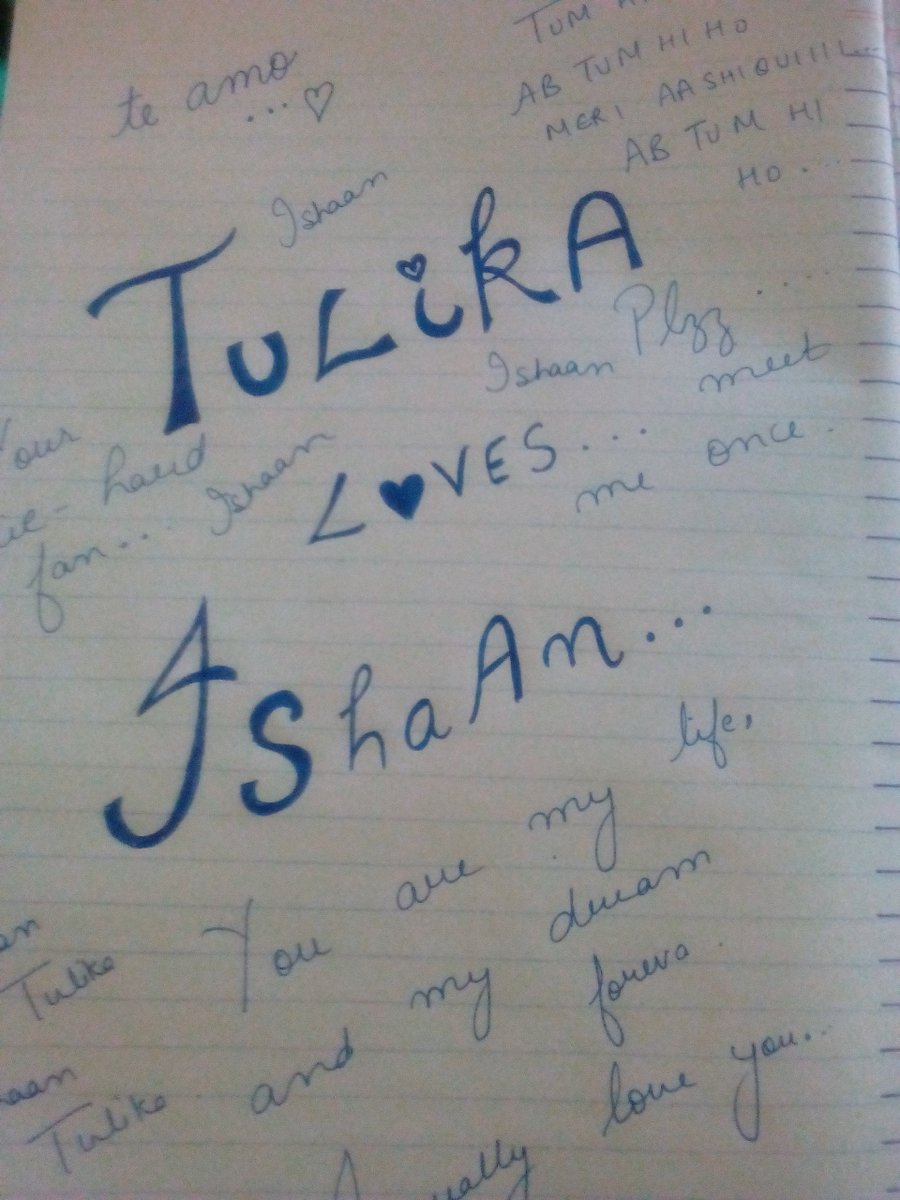 TUM
te amo
...♡
AB TUM HI HO
MERI AASHIQUIIII...
AB TUM HI
HO....
Ishaan
TULiKA
Plzz....
Ishaan
meet
me once.
Your
die-hard
fan...
Ishaan
L♥VES...
IshaAn...
You are my life,
and my dream
foreva.
Tulika
Tulika
love you..